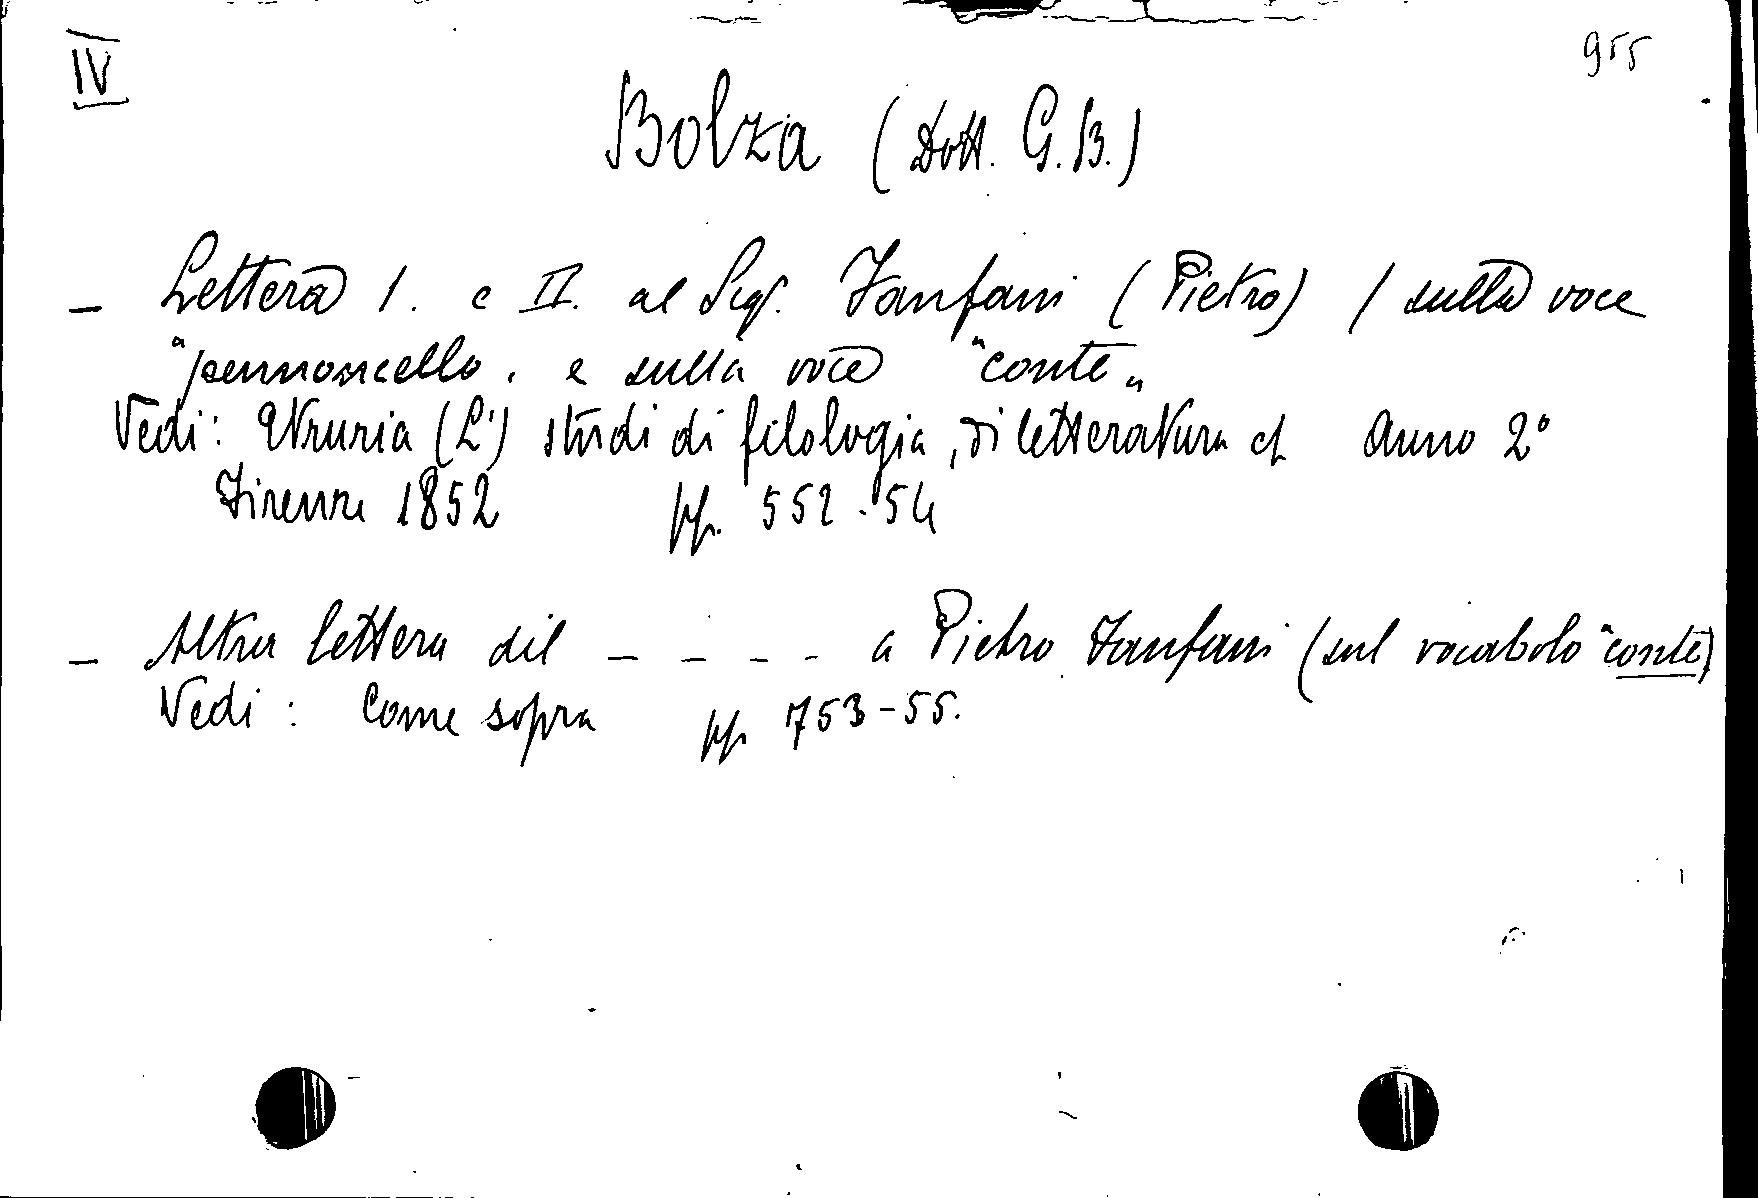 IV
955
Bolza (Dott. G.B.)
- Lettera I. e II. al Sigr. Fanfani (Pietro) / sulla voce
"pennoncello. e sulla voce "conte"
Vedi: Etruria (L') studi di filologia, di letteratura et Anno 2°
Firenze 1852 pp. 552-54
- Altra lettera del - - - - a Pietro Fanfani (sul vocabolo "conte)
Vedi: Come sopra pp 753-55.